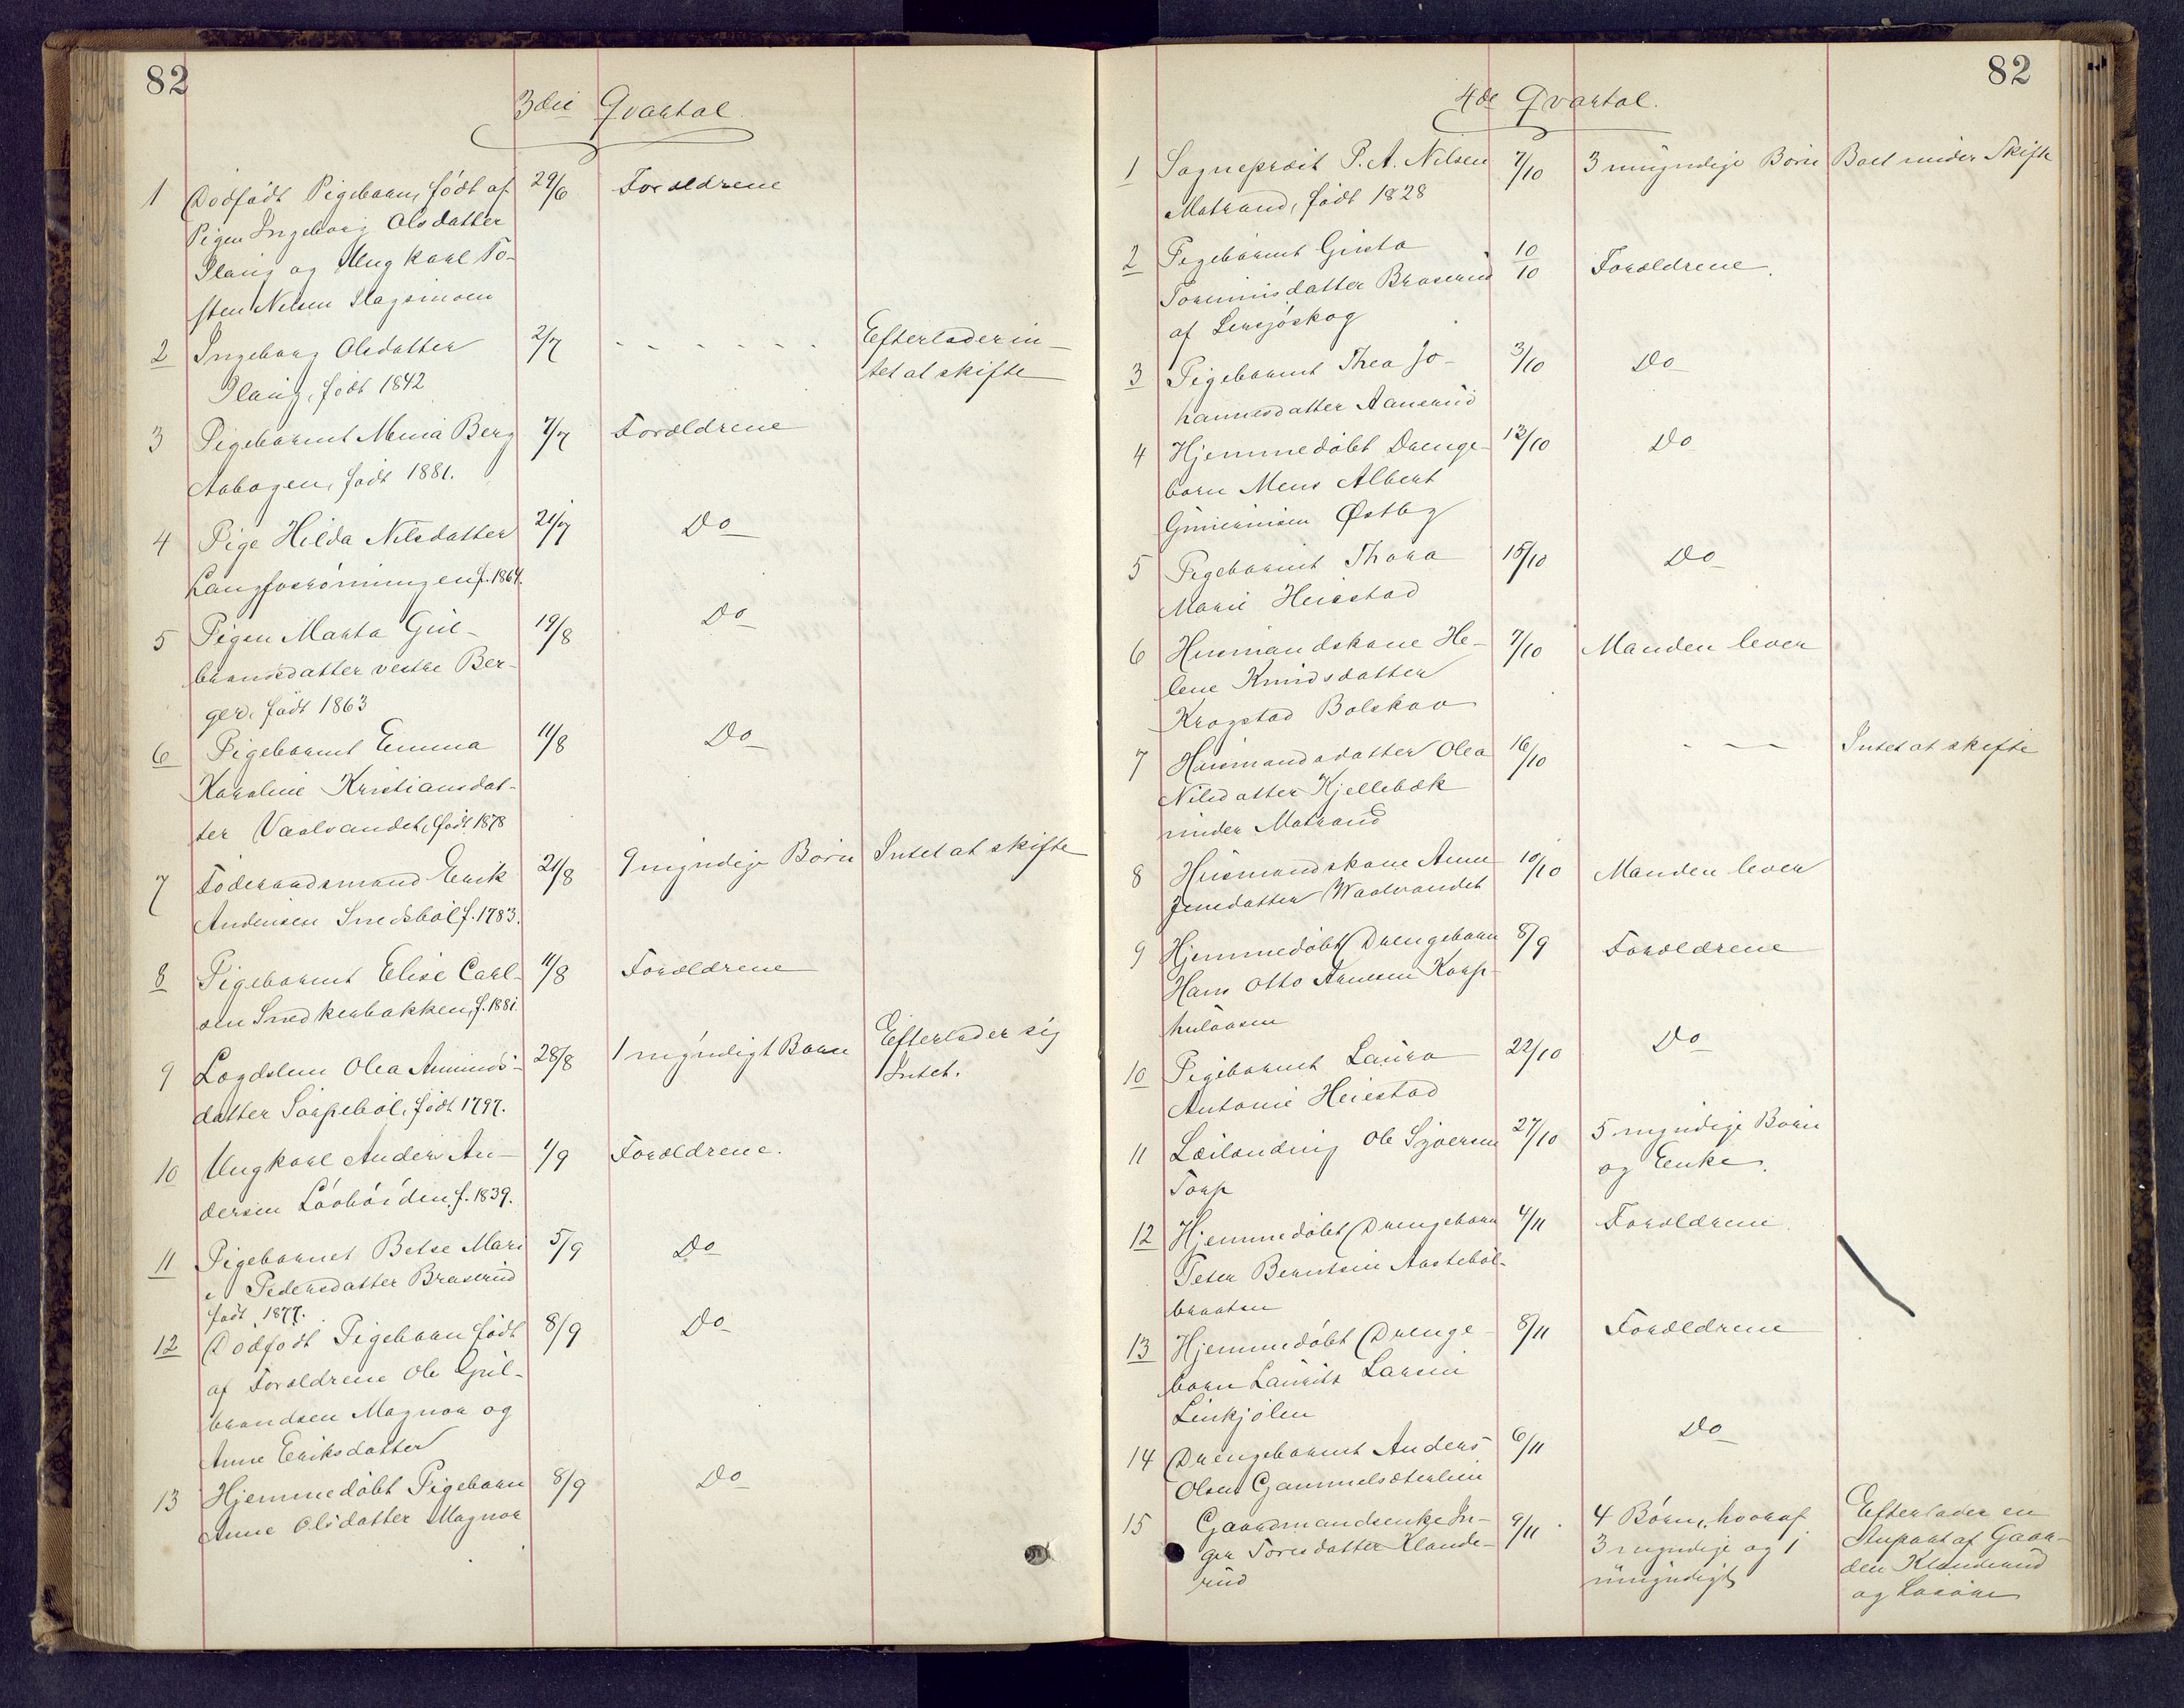 82
3die Qvartal.
1 Dødfødt Pigebarn, født af 29/6 Forældrene
Pigen Ingeborg Olsdatter
og Ungkarl To-
sten Nilsen Magnmoen
2 Ingeborg Olsdatter 2/7 - - - - - - Efterlader in-
født 1842 tet at skifte
3 Pigebarnet Mina Berg 7/7 Forældrene
Aabogen, født 1881.
4 Pige Hilda Nilsdatter 21/7 Do
f. 1864.
5 Pigen Marta Gul- 19/8 Do
brandsdatter vestre Ber-
ger, født 1863
6 Pigebarnet Emma 11/8 Do
Karoline Kristiansdat-
ter Vaalvandet, født 1878
7 Föderaadsmand Erik 21/8 9 myndige Börn Intet at skifte
Andersen Snedsböl f. 1783.
8 Pigebarnet Elise Carl- 11/8 Forældrene
sen Snedkerbakken, f. 1881.
9 Lægdslem Olea Amunds- 28/8 1 myndigt Barn Efterlader sig
datter Sörpeböl, født 1797. Intet.
10 Ungkarl Anders An- 1/9 Forældrene.
dersen f. 1839.
11 Pigebarnet Betse Mari 5/9 Do
e Pedersdatter Braserud
født 1877.
12 Dødfødt Pigebarn født 8/9 Do
af Forældrene Ole Gul-
brandsen Magnor og
Anne Eriksdatter
13 Hjemmedøbt Pigebarn 8/9 Do
Anne Olsdatter Magnor
82
4de Qvartal.
1 Sognepræst P. A. Nilsen 7/10 3 umyndige Börn Boet under Skifte
Matrand, født 1828
2 Pigebarnet Gusta 10/10 Forældrene.
datter Braserud
af Lersjöskog
3 Pigebarnet Thea Jo- 3/10 Do
hannesdatter Aanerud
4 Hjemmedøbt Drenge- 12/10 Do
barn Mens Albert
Østby
5 Pigebarnet Thora 15/10 Do
Marie Heiestad
6 Husmandskone He- 7/10 Manden lever
lene Knudsdatter
Krogstad
7 Husmandsdatter Olea 16/10 - - - Intet at skifte
Nilsdatter Kjellebæk
under Matrand
8 Husmandskone Anne 10/10 Manden lever
Jensdatter Waalvandet
9 Hjemmedøbt Drengebarn 8/9 Forældrene
Hans Otto Arnesen Korp-
hulaasen
10 Pigebarnet Laura 22/10 Do
Antonie Heiestad
11 Leilænding Ole Syversen 27/10 5 myndige Börn
Torp og Enke.
12 Hjemmedøbt Drengebarn 4/11 Forældrene.
Peter Berntsen Aasteböl-
braaten
13 Hjemmedøbt Drenge- 8/11 Forældrene
barn Laurits Larsen
Linkjölen
14 Drengebarnet Anders 6/11 Do
Olsen Gammelsæterlien
15 Gaardmandsenke In- 9/11 4 Börn, hvoraf Efterlader en
ger Toresdatter Klande- 3 myndige og 1 Anpart af Gaar-
rud umyndigt den Klanderud
og Lösöre